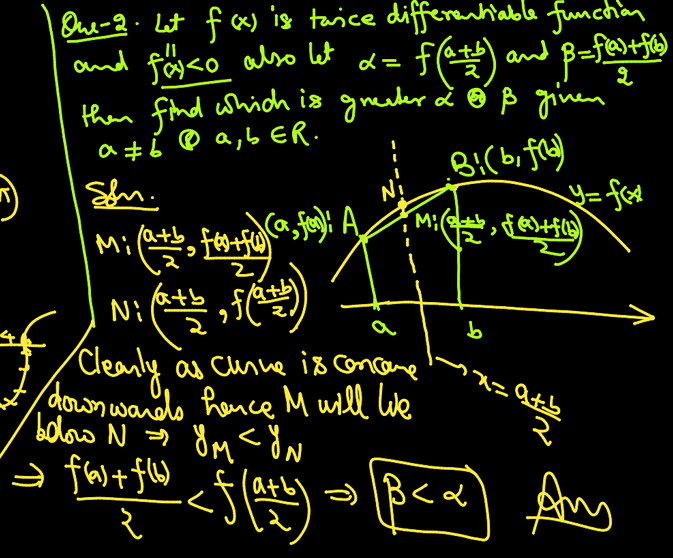 Que-2. Let f(x) is twice differentiable function
and f''(x)<0 also let α = f((a+b)/2) and β = (f(a)+f(b))/2
then find which is greater α or β given
a ≠ b & a, b ∈ R.
Soln.
M: ((a+b)/2, (f(a)+f(b))/2)
N: ((a+b)/2, f((a+b)/2))
B: (b, f(b))
N
y = f(x)
(a, f(a)): A
M: ((a+b)/2, (f(a)+f(b))/2)
a
b
x = (a+b)/2
Clearly as curve is concave
downwards hence M will lie
below N ⇒ y_M < y_N
⇒ (f(a)+f(b))/2 < f((a+b)/2) ⇒ β < α Ans